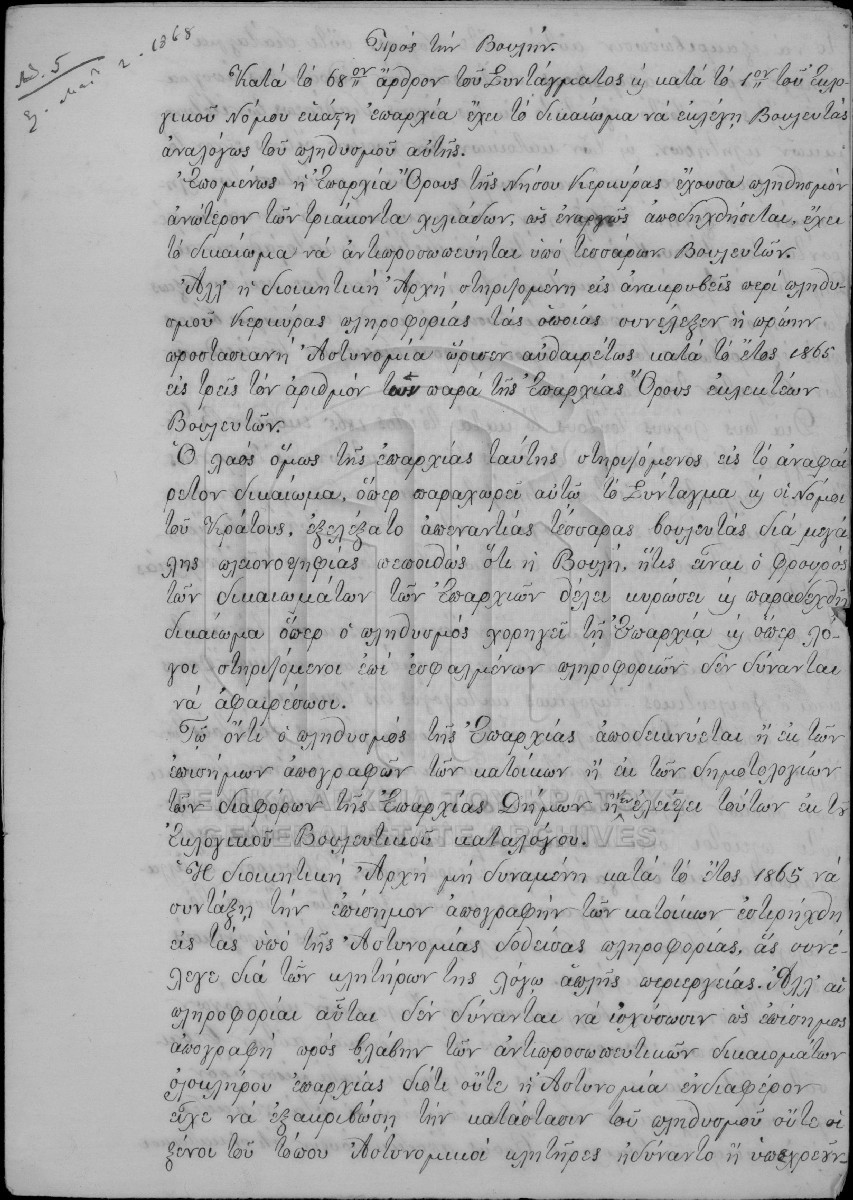 Αρ. 5
2 - 1868
Πρός τήν Βουλήν.
Κατά τό 68ον ἄρθρον τοῦ Συντάγματος ϗ κατά τό 1ον τοῦ Ἐκλο-
γικοῦ Νόμου ἑκάστη ἐπαρχία ἔχει τό δικαίωμα νά ἐκλέγῃ Βουλευτάς
ἀναλόγως τοῦ πληθυσμοῦ αὐτῆς.
Ἑπομένως ἡ Ἐπαρχία Ὄρους τῆς Νήσου Κερκύρας ἔχουσα πληθησμόν
ἀνώτερον τῶν τριάκοντα χιλιάδων, ὡς ἐναργῶς ἀποδηχθήσεται, ἔχει
τό δικαίωμα νά ἀντιπροσωπεύηται ὑπό τεσσάρων Βουλευτῶν.
Ἀλλ' ἡ διοικητική Ἀρχή στηριζομένη εἰς ἀνακρυβεῖς περί πληθυ-
σμοῦ Κερκύρας πληροφορίας τάς ὁποίας συνέλεξεν ἡ πρώην
προστασιανή Ἀστυνομία ὥρισεν αὐθαιρέτως κατά τό ἔτος 1865
εἰς τρεῖς τόν ἀριθμόν τῶν παρά τῆς Ἐπαρχίας Ὄρους ἐκλεκτέων
Βουλευτῶν.
Ὁ λαός ὅμως τῆς ἐπαρχίας ταύτης στηριζόμενος εἰς τό ἀναφαί
ρετον δικαίωμα, ὅπερ παραχωρεῖ αὐτῷ τό Σύνταγμα ϗ οἱ Νόμοι
τοῦ Κράτους, ἐξελέξατο ἀπεναντίας τέσσαρας βουλευτάς διά μεγά
λης πλειονοψηφίας πεποιθώς ὅτι ἡ Βουλή, ἥτις εἶναι ὁ φρουρός
τῶν δικαιωμάτων τῶν Ἐπαρχιῶν θέλει κυρώσει ϗ παραδεχθῇ
δικαίωμα ὅπερ ὁ πληθυσμός χορηγεῖ τῇ Ἐπαρχίᾳ ϗ ὅπερ λό-
γοι στηριζόμενοι ἐπί ἐσφαλμένων πληροφοριῶν δέν δύνανται
νά ἀφαιρέσωσι.
Τῷ ὄντι ὁ πληθυσμός τῆς Ἐπαρχίας ἀποδεικνύεται ἤ ἐκ τῶν
ἐπισήμων ἀπογραφῶν τῶν κατοίκων ἤ ἐκ τῶν δημοτολογίων
τῶν διαφόρων τῆς Ἐπαρχίας Δήμων ἤ ἐν ἐλείψει τούτων ἐκ τοῦ
Ἐκλογικοῦ Βουλευτικοῦ καταλόγου.
Ἡ διοικητική Ἀρχή μή δυναμένη κατά τό ἔτος 1865 νά
συντάξῃ τήν ἐπίσημον ἀπογραφήν τῶν κατοίκων ἐστιρήχθη
εἰς τάς ὑπό τῆς Ἀστυνομίας δοθείσας πληροφορίας, ἅς συνέ-
λεγε διά τῶν κλητήρων της λόγῳ ἁπλῆς περιεργείας. Ἀλλ' αἱ
πληροφορίαι αὗται δέν δύνανται νά ἰσχύσωσιν ὡς ἐπίσημος
ἀπογραφή πρός βλάβην τῶν ἀντιπροσωπευτικῶν δικαιομάτων
ὁλοκλήρου ἐπαρχίας διότι οὔτε ἡ Ἀστυνομία ἐνδιαφέρον
εἶχε νά ἐξακριβώσῃ τήν κατάστασιν τοῦ πληθυσμοῦ οὔτε οἱ
ξένοι τοῦ τόπου Ἀστυνομικοί κλητῆρες ἠδύναντο ἤ ὑπεχρεοῦν-
ΓΕΝΙΚΑ ΑΡΧΕΙΑ ΤΟΥ ΚΡΑΤΟΥΣ
GENERAL STATE ARCHIVES